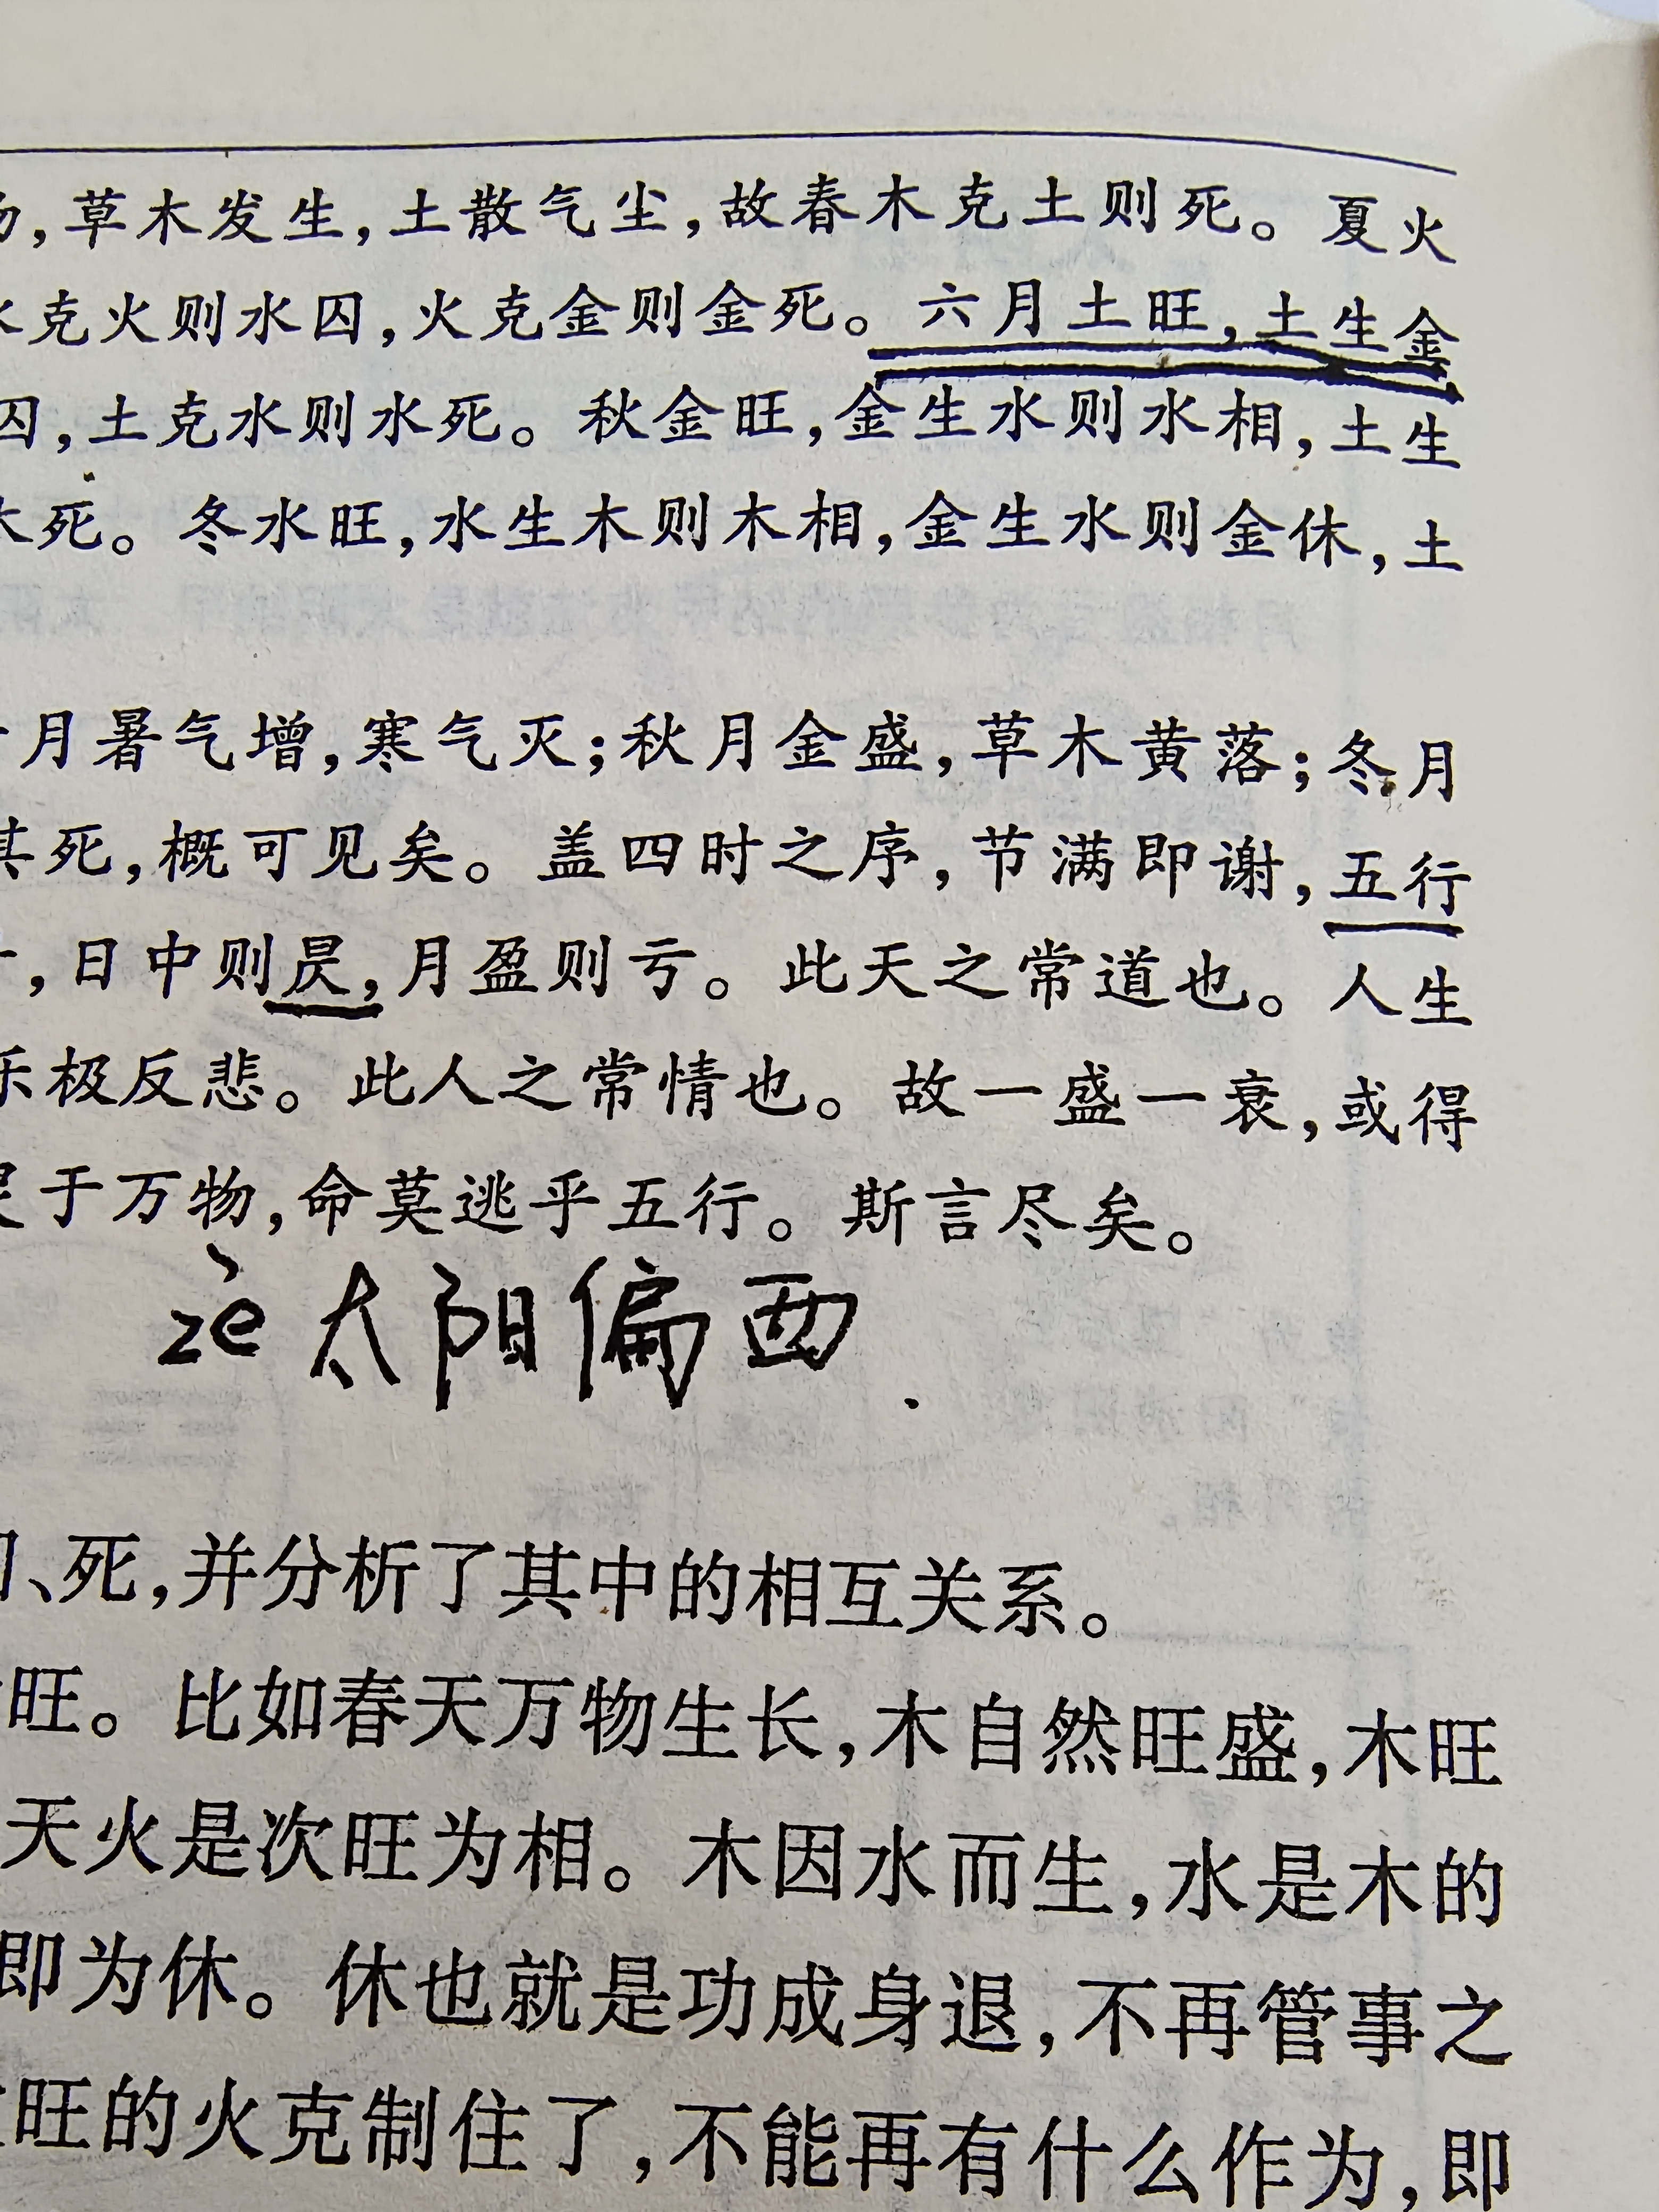 ,草木发生,土散气尘,故春木克土则死。夏火
克火则水囚,火克金则金死。六月土旺,土生金
囚,土克水则水死。秋金旺,金生水则水相,土生
木死。冬水旺,水生木则木相,金生水则金休,土
月暑气增,寒气灭;秋月金盛,草木黄落;冬月
其死,概可见矣。盖四时之序,节满即谢,五行
,日中则昃,月盈则亏。此天之常道也。人生
乐极反悲。此人之常情也。故一盛一衰,或得
于万物,命莫逃乎五行。斯言尽矣。
zè 太阳偏西.
、死,并分析了其中的相互关系。
旺。比如春天万物生长,木自然旺盛,木旺
天火是次旺为相。木因水而生,水是木的
即为休。休也就是功成身退,不再管事之
旺的火克制住了,不能再有什么作为,即